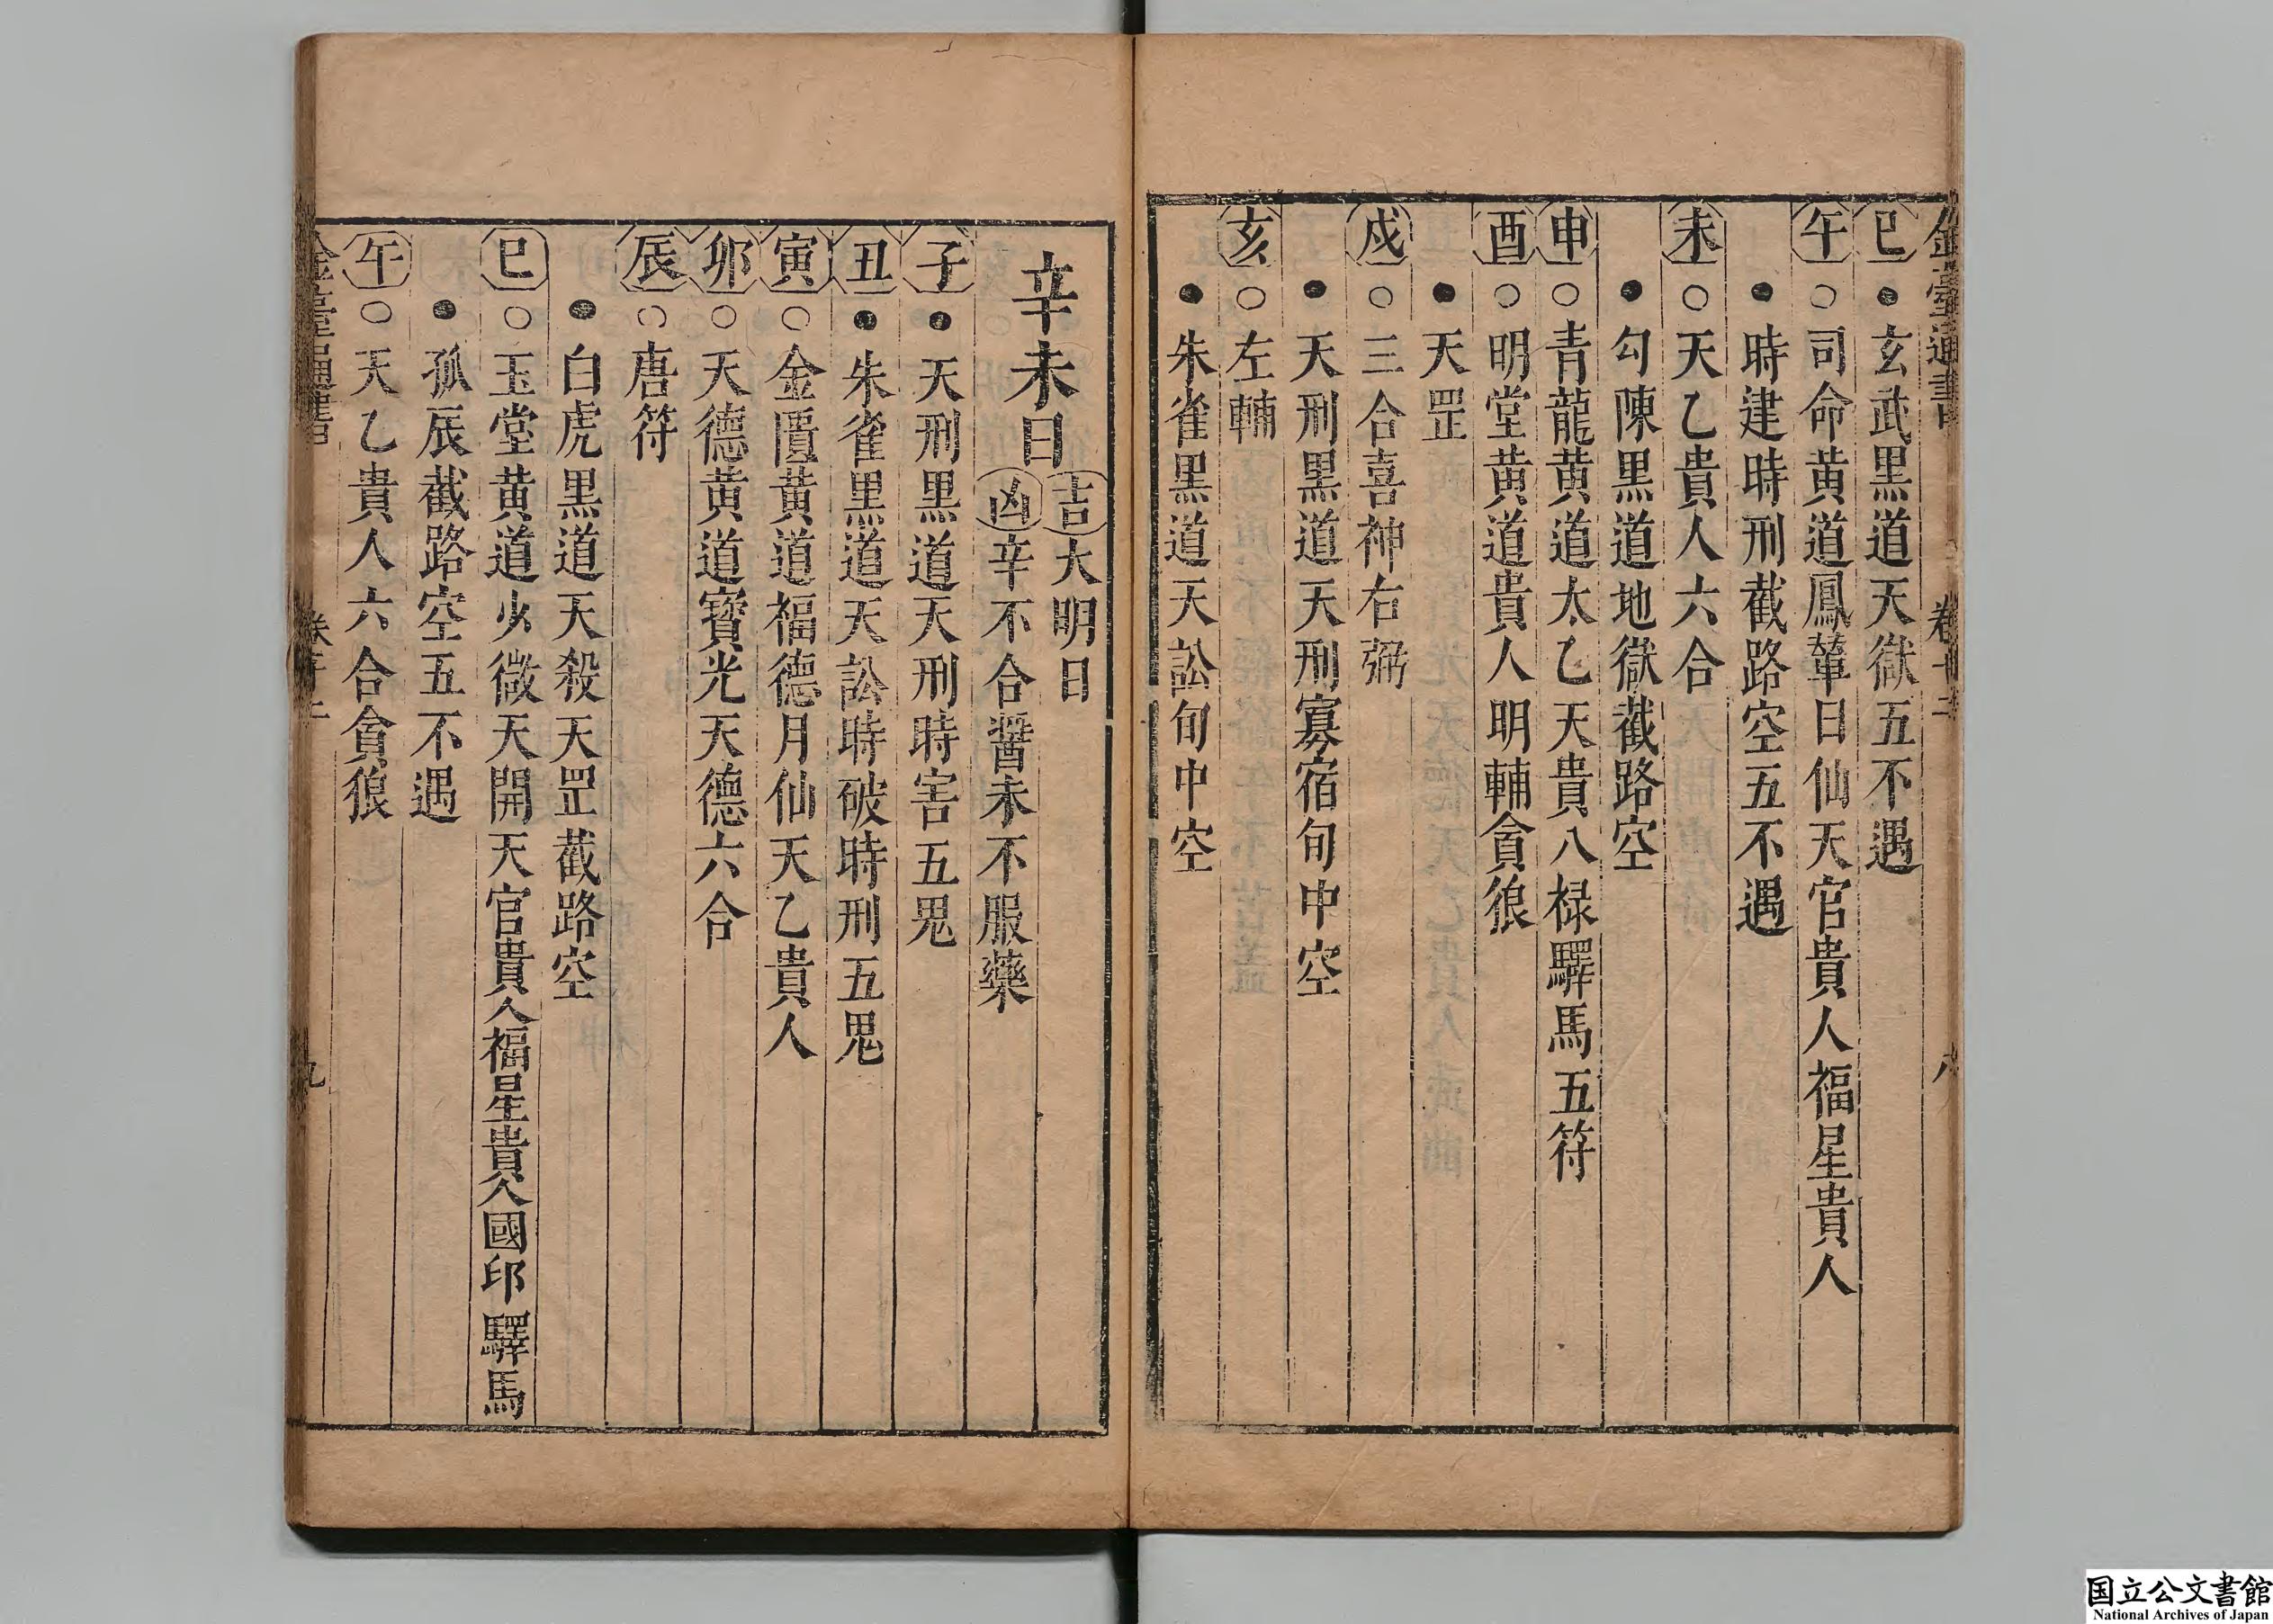 金臺通書 卷廿二 八
巳●玄武黑道天獄五不遇
午○司命黃道鳳輦日仙天官貴人福星貴人
●時建時刑截路空五不遇
未○天乙貴人六合
●勾陳黑道地獄截路空
申○青龍黃道太乙天貴八祿驛馬五符
酉○明堂黃道貴人明輔貪狼
●天罡
戍○三合喜神右弼
●天刑黑道天刑寡宿旬中空
亥○左輔
●朱雀黑道天訟旬中空
辛未日
吉大明日
凶辛不合醬未不服藥
子●天刑黑道天刑時害五鬼
丑●朱雀黑道天訟時破時刑五鬼
寅○金匱黃道福德月仙天乙貴人
卯○天德黃道寶光天德六合
辰○唐符
●白虎黑道天殺天罡截路空
巳○玉堂黃道少微天開天官貴人福星貴人國印驛馬
●孤辰截路空五不遇
午○天乙貴人六合貪狼
金臺通書 九
国立公文書館
National Archives of Japan